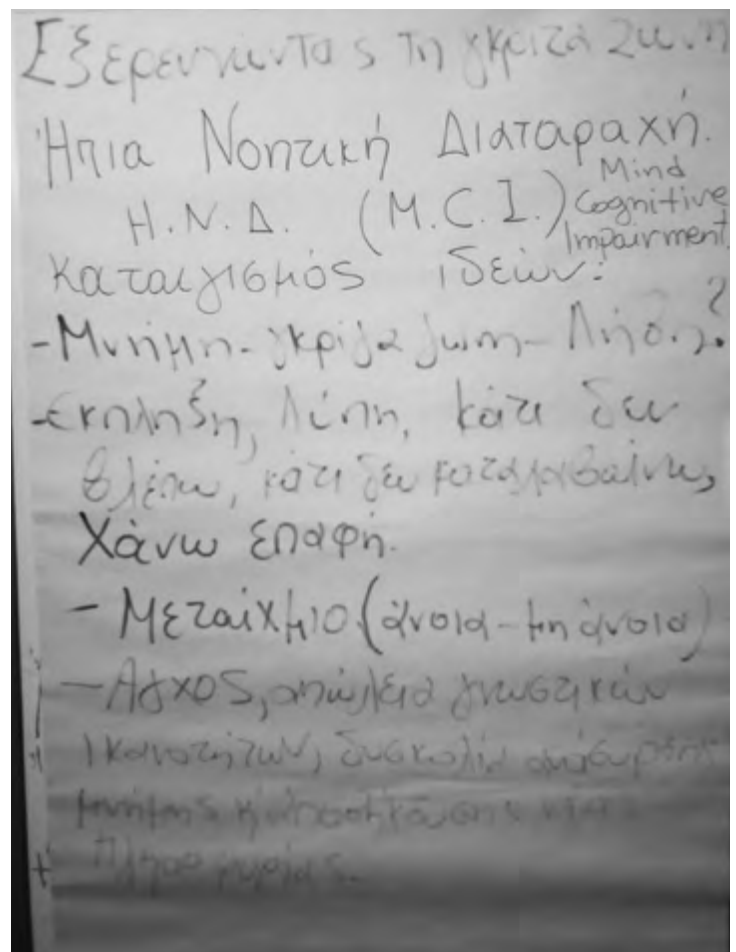 Εξερευνώντας τη γκρίζα ζώνη
Ήπια Νοητική Διαταραχή.
Η.Ν.Δ. (M.C.I.) Mind
Cognitive
Impairment
Καταιγισμός ιδεών:
-Μνήμη-γκρίζα ζωνη-Λήθη?
-Εκπληξη, λύπη, κάτι δεν
βλέπω, κάτι δεν καταλαβαίνω,
Χάνω επαφή.
- Μεταίχμιο (άνοια-μη άνοια)
- Αγχος, απώλεια γνωστικών
ικανοτήτων, δυσκολία ανάσυρσης
μνήμης
πληροφορίας.